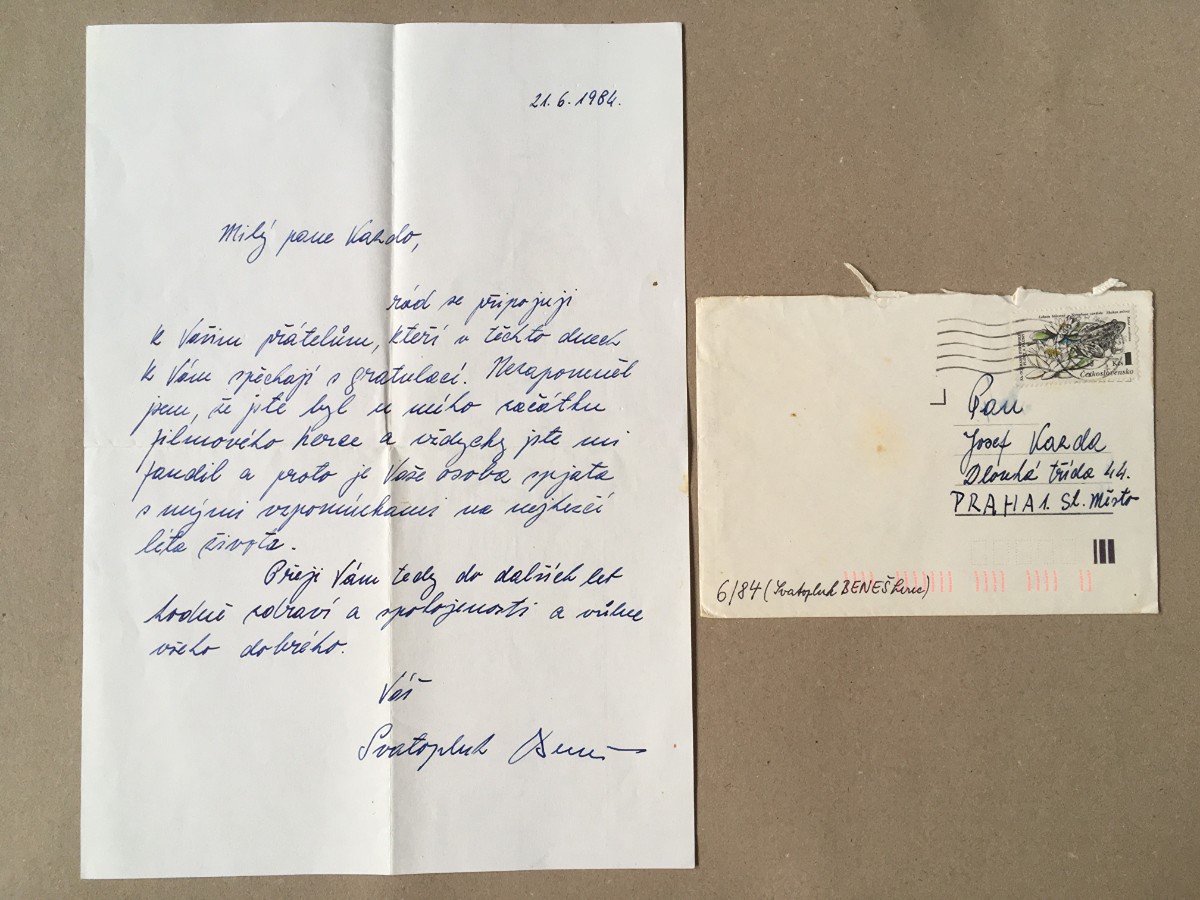 21.6.1984.
Milý pane Kazdo,
rád se připojuji
k Vašim přátelům, kteří v těchto dnech
k Vám spěchají s gratulací. Nezapomněl
jsem, že jste byl u mého začátku
filmového herce a vždycky jste mi
fandil a proto je Vaše osoba spjata
s mými vzpomínkami na nejhezčí
léta života.
Přeji Vám tedy do dalších let
hodně zdraví a spokojenosti a vůbec
všeho dobrého.
Váš
Svatopluk Beneš
Československo
Pan
Josef Kazda
Dlouhá třída 44.
PRAHA 1. St. Město
6/84 (Svatopluk BENEŠ herec)